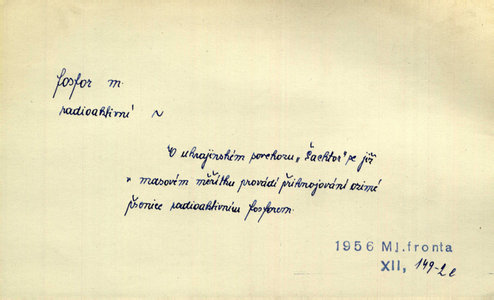 fosfor m.
radioaktivní ~
V ukrajinském sovchozu „Šachtor" se již
v masovém měřítku provádí přihnojování ozimé
pšenice radioaktivním fosforem.
1956 Ml.fronta
XII, 149-2c